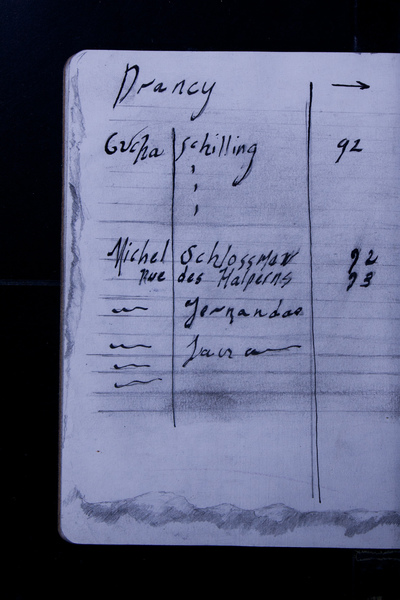 Drancy →
Gucha Schilling 92
Michel Schlossman 92
Rue des Halperns 93
Jernandos